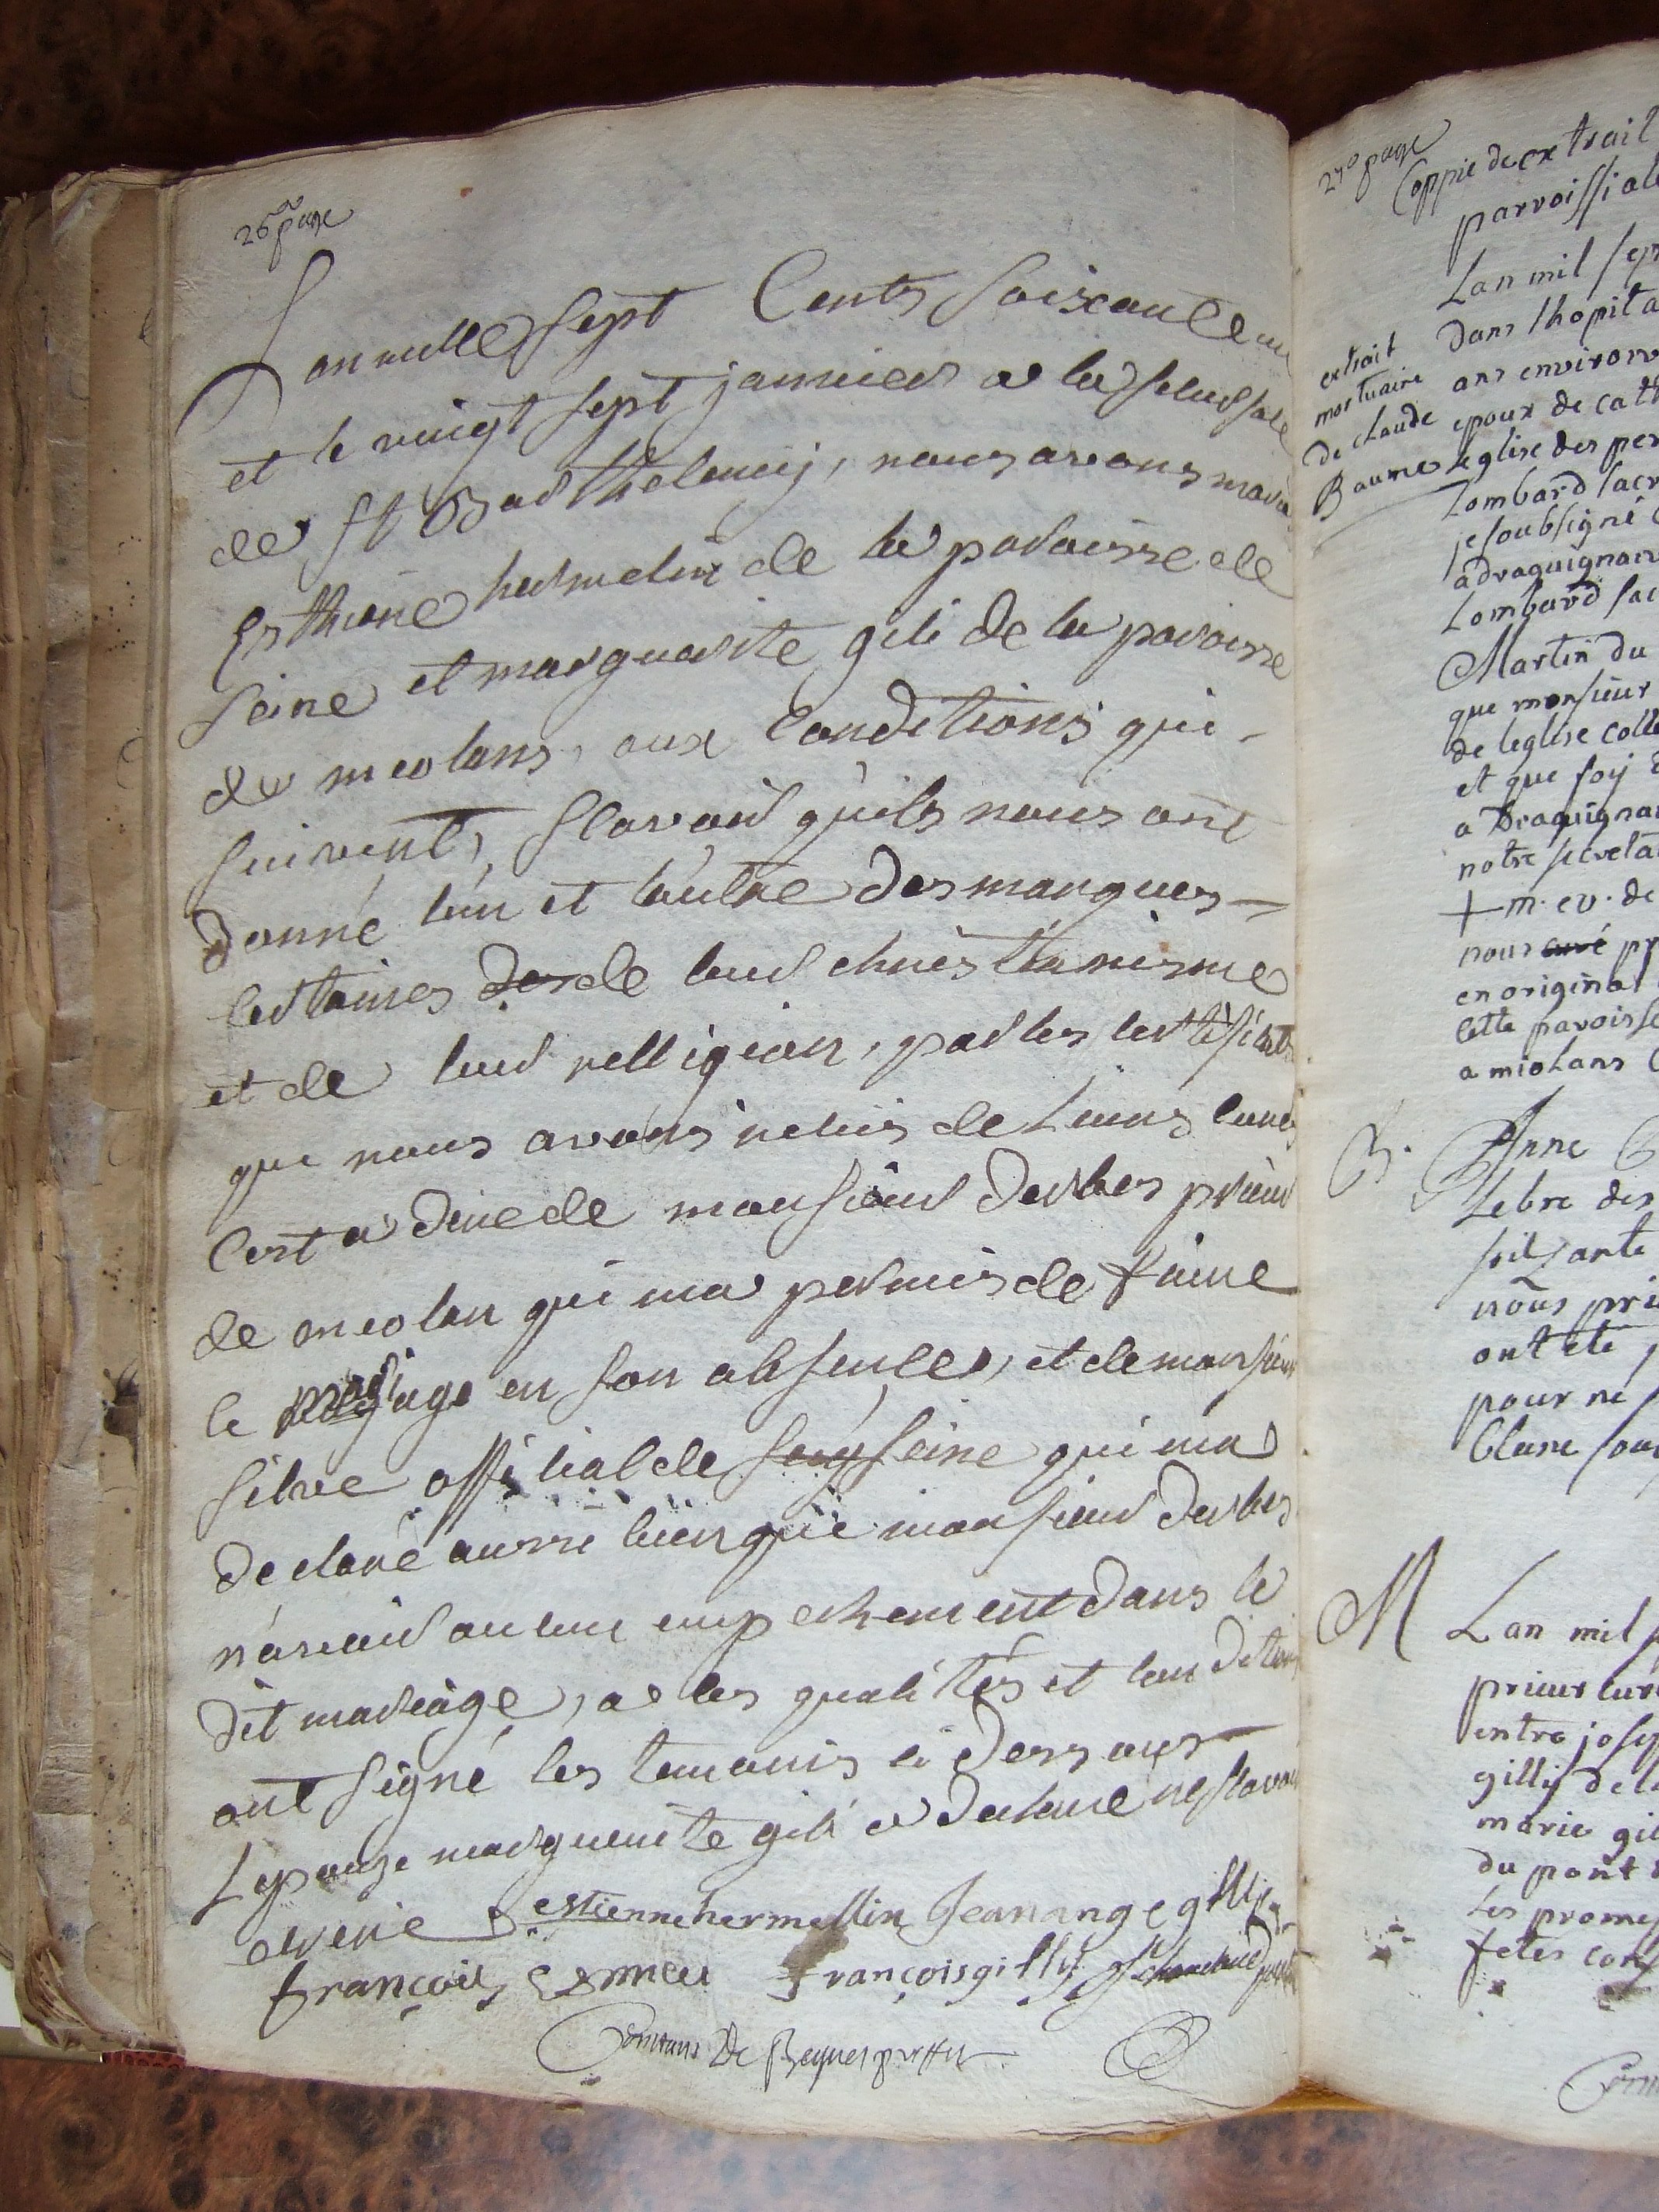 26e page
Lan mille sept Cents soixante un
et le vingt sept janvier a la succursale
de st Barthelemij, nous avons marié
Esthiene hermelin de la paroisse de
seine et marguarite gili de la paroisse
de meolans, aux Conditions qui
suivent, scavoir quils nous ont
donné lun et lautre des marques
certaines des de leur christianisme
et de leur relligion, par les certificats
que nous avons recus de Leurs cures
Cest a dire de monsieur derbes prieur
de meolan qui ma permis de faire
le mariage en son absence, et de monsieur
silve official de seine qui ma
declaré aussi bien que monsieur derbes
n'avoir aucun empechement dans le
dit mariage, a les qualités et condition
ont signé les temoins ci dessous
Lepouse marguerite gili a declare ne scavoir
ecrire estienne hermellin Jean ange gilli
françois Esmieu françois gilly
Comtans De Beynes prettre
27e page
Coppie de extrait
parroissiale
Lan mil sept
extrait mortuaire de claude Baume
dans lhopita
ans environ
epoux de cath
leglise des pe
Lombard sacr
je soubsigné
a draguignan
Lombard sac
Martin du
que monsieur
de leglise colle
et que foij
a Draguignan
notre secreta
+ m. ev. de
nous curé pr
en original
cette paroisse
a miolans
B. Anne
Lebre des
soixante
nous pri
ont été
pour né
Clare sou
M Lan mil s
prieur curé
entre josep
gilly de la
marie gil
du pont
les promes
fetes cons